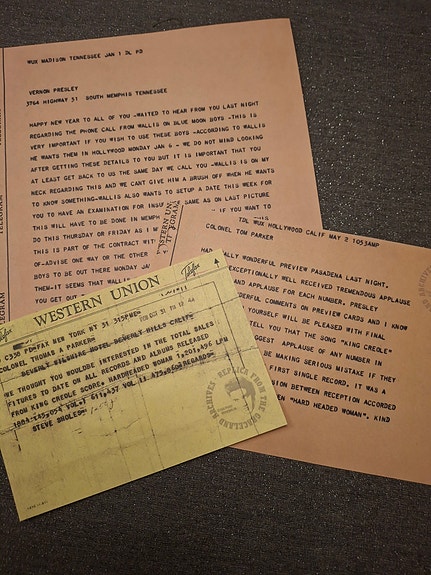 WUX MADISON TENNESSEE JAN 1 DL PD
VERNON PRESLEY
3764 HIGHWAY 51 SOUTH MEMPHIS TENNESSEE
HAPPY NEW YEAR TO ALL OF YOU -WAITED TO HEAR FROM YOU LAST NIGHT
REGARDING THE PHONE CALL FROM WALLIS ON BLUE MOON BOYS -THIS IS
VERY IMPORTANT IF YOU WISH TO USE THESE BOYS -ACCORDING TO WALLIS
HE WANTS THEM IN HOLLYWOOD MONDAY JAN 6 - WE DO NOT MIND LOOKING
AFTER GETTING THESE DETAILS TO YOU BUT IT IS IMPORTANT THAT YOU
AT LEAST GET BACK TO US THE SAME DAY WE CALL YOU -WALLIS IS ON MY
NECK REGARDING THIS AND WE CANT GIVE HIM A BRUSH OFF WHEN HE WANTS
TO KNOW SOMETHING-WALLIS ALSO WANTS TO SETUP A DATE THIS WEEK FOR
YOU TO HAVE AN EXAMINATION FOR INSUR SAME AS ON LAST PICTURE
THIS WILL HAVE TO BE DONE IN MEMPH IF YOU WANT TO
DO THIS THURSDAY OR FRIDAY AS I W
THIS IS PART OF THE CONTRACT WITH
OF-ADVISE ONE WAY OR THE OTHER
BOYS TO BE OUT THERE MONDAY JA
THEM-IT SEEMS THAT WALLIS
YOU GET OUT
WESTERN UN
TELEGRAM
TDL WUX HOLLYWOOD CALIF MAY 2 1053AMP
COLONEL TOM PARKER
HAD REALLY WONDERFUL PREVIEW PASADENA LAST NIGHT.
EXCEPTIONALLY WELL RECEIVED TREMENDOUS APPLAUSE
AND APPLAUSE FOR EACH NUMBER. PRESLEY
DERFUL COMMENTS ON PREVIEW CARDS AND I KNOW
YOURSELF WILL BE PLEASED WITH FINAL
TELL YOU THAT THE SONG "KING CREOLE"
GGEST APPLAUSE OF ANY NUMBER IN
BE MAKING SERIOUS MISTAKE IF THEY
FIRST SINGLE RECORD. IT WAS A
ION BETWEEN RECEPTION ACCORDED
EN "HARD HEADED WOMAN". KIND
ARCHIVES
Telefax
WESTERN UNION
Telefax
C350 FAX NEW YORK NY 31 315PME
COLONEL THOMAS A PARKER
BEVERLY WILSHIRE HOTEL BEVERLY HILLS CALIF
WE THOUGHT YOU WOULDBE INTERESTED IN THE TOTAL SALES
FITURES TO DATE ON ALL RECORDS AND ALBUMS RELEASED
FROM KING CREOLE SCORE. HARDHEADED WOMAN
STEVE SHOLES
REPLICA FROM THE GRACELAND ARCHIVES